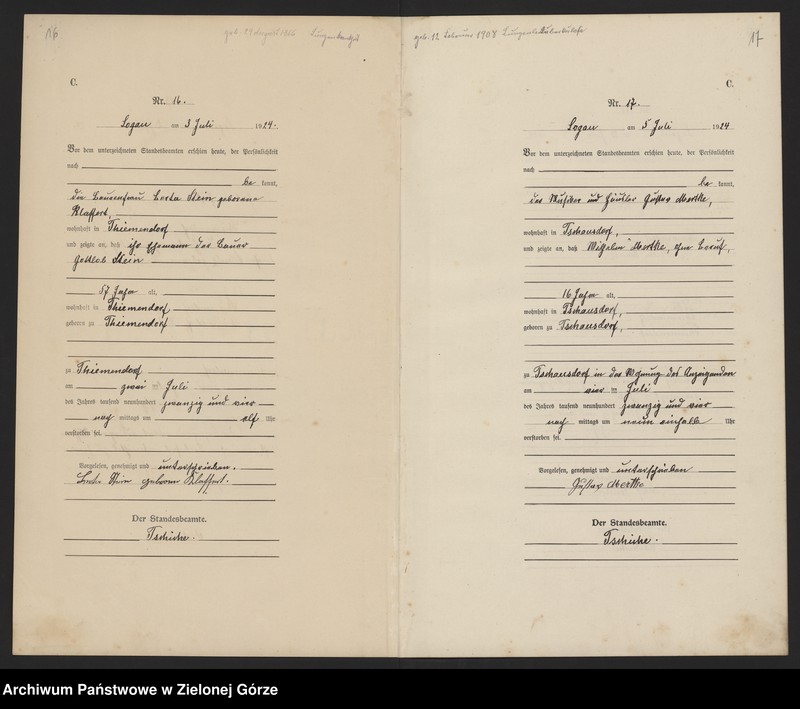 16
geb. 29 August 1866
C.
Nr. 16.
Logau am 3 Juli 1924.
Vor dem unterzeichneten Standesbeamten erschien heute, der Persönlichkeit
nach
be kannt,
die Stein geborene
Klaffert,
wohnhaft in Thiemendorf
und zeigte an, daß ihr Ehemann der Bauer
Gottlob Stein
57 Jahre alt,
wohnhaft in Thiemendorf
geboren zu Thiemendorf
zu Thiemendorf
am zwei Juli
des Jahres tausend neunhundert zwanzig und vier
nach mittags um elf Uhr
verstorben sei.
Vorgelesen, genehmigt und unterschrieben.
Stein geborene Klaffert.
Der Standesbeamte.
Tschiche.
geb. 12 Februar 1908 Lungentuberkulose
17
C.
Nr. 17.
Logau am 5 Juli 1924
Vor dem unterzeichneten Standesbeamten erschien heute, der Persönlichkeit
nach
be kannt,
der und Häusler Gustav Mertke,
wohnhaft in Tschausdorf,
und zeigte an, daß Wilhelm Mertke, ohne Beruf,
16 Jahre alt,
wohnhaft in Tschausdorf,
geboren zu Tschausdorf,
zu Tschausdorf in der Wohnung des Anzeigenden
am vier Juli
des Jahres tausend neunhundert zwanzig und vier
nach mittags um neun einhalb Uhr
verstorben sei.
Vorgelesen, genehmigt und unterschrieben
Gustav Mertke
Der Standesbeamte.
Tschiche.
Archiwum Państwowe w Zielonej Górze